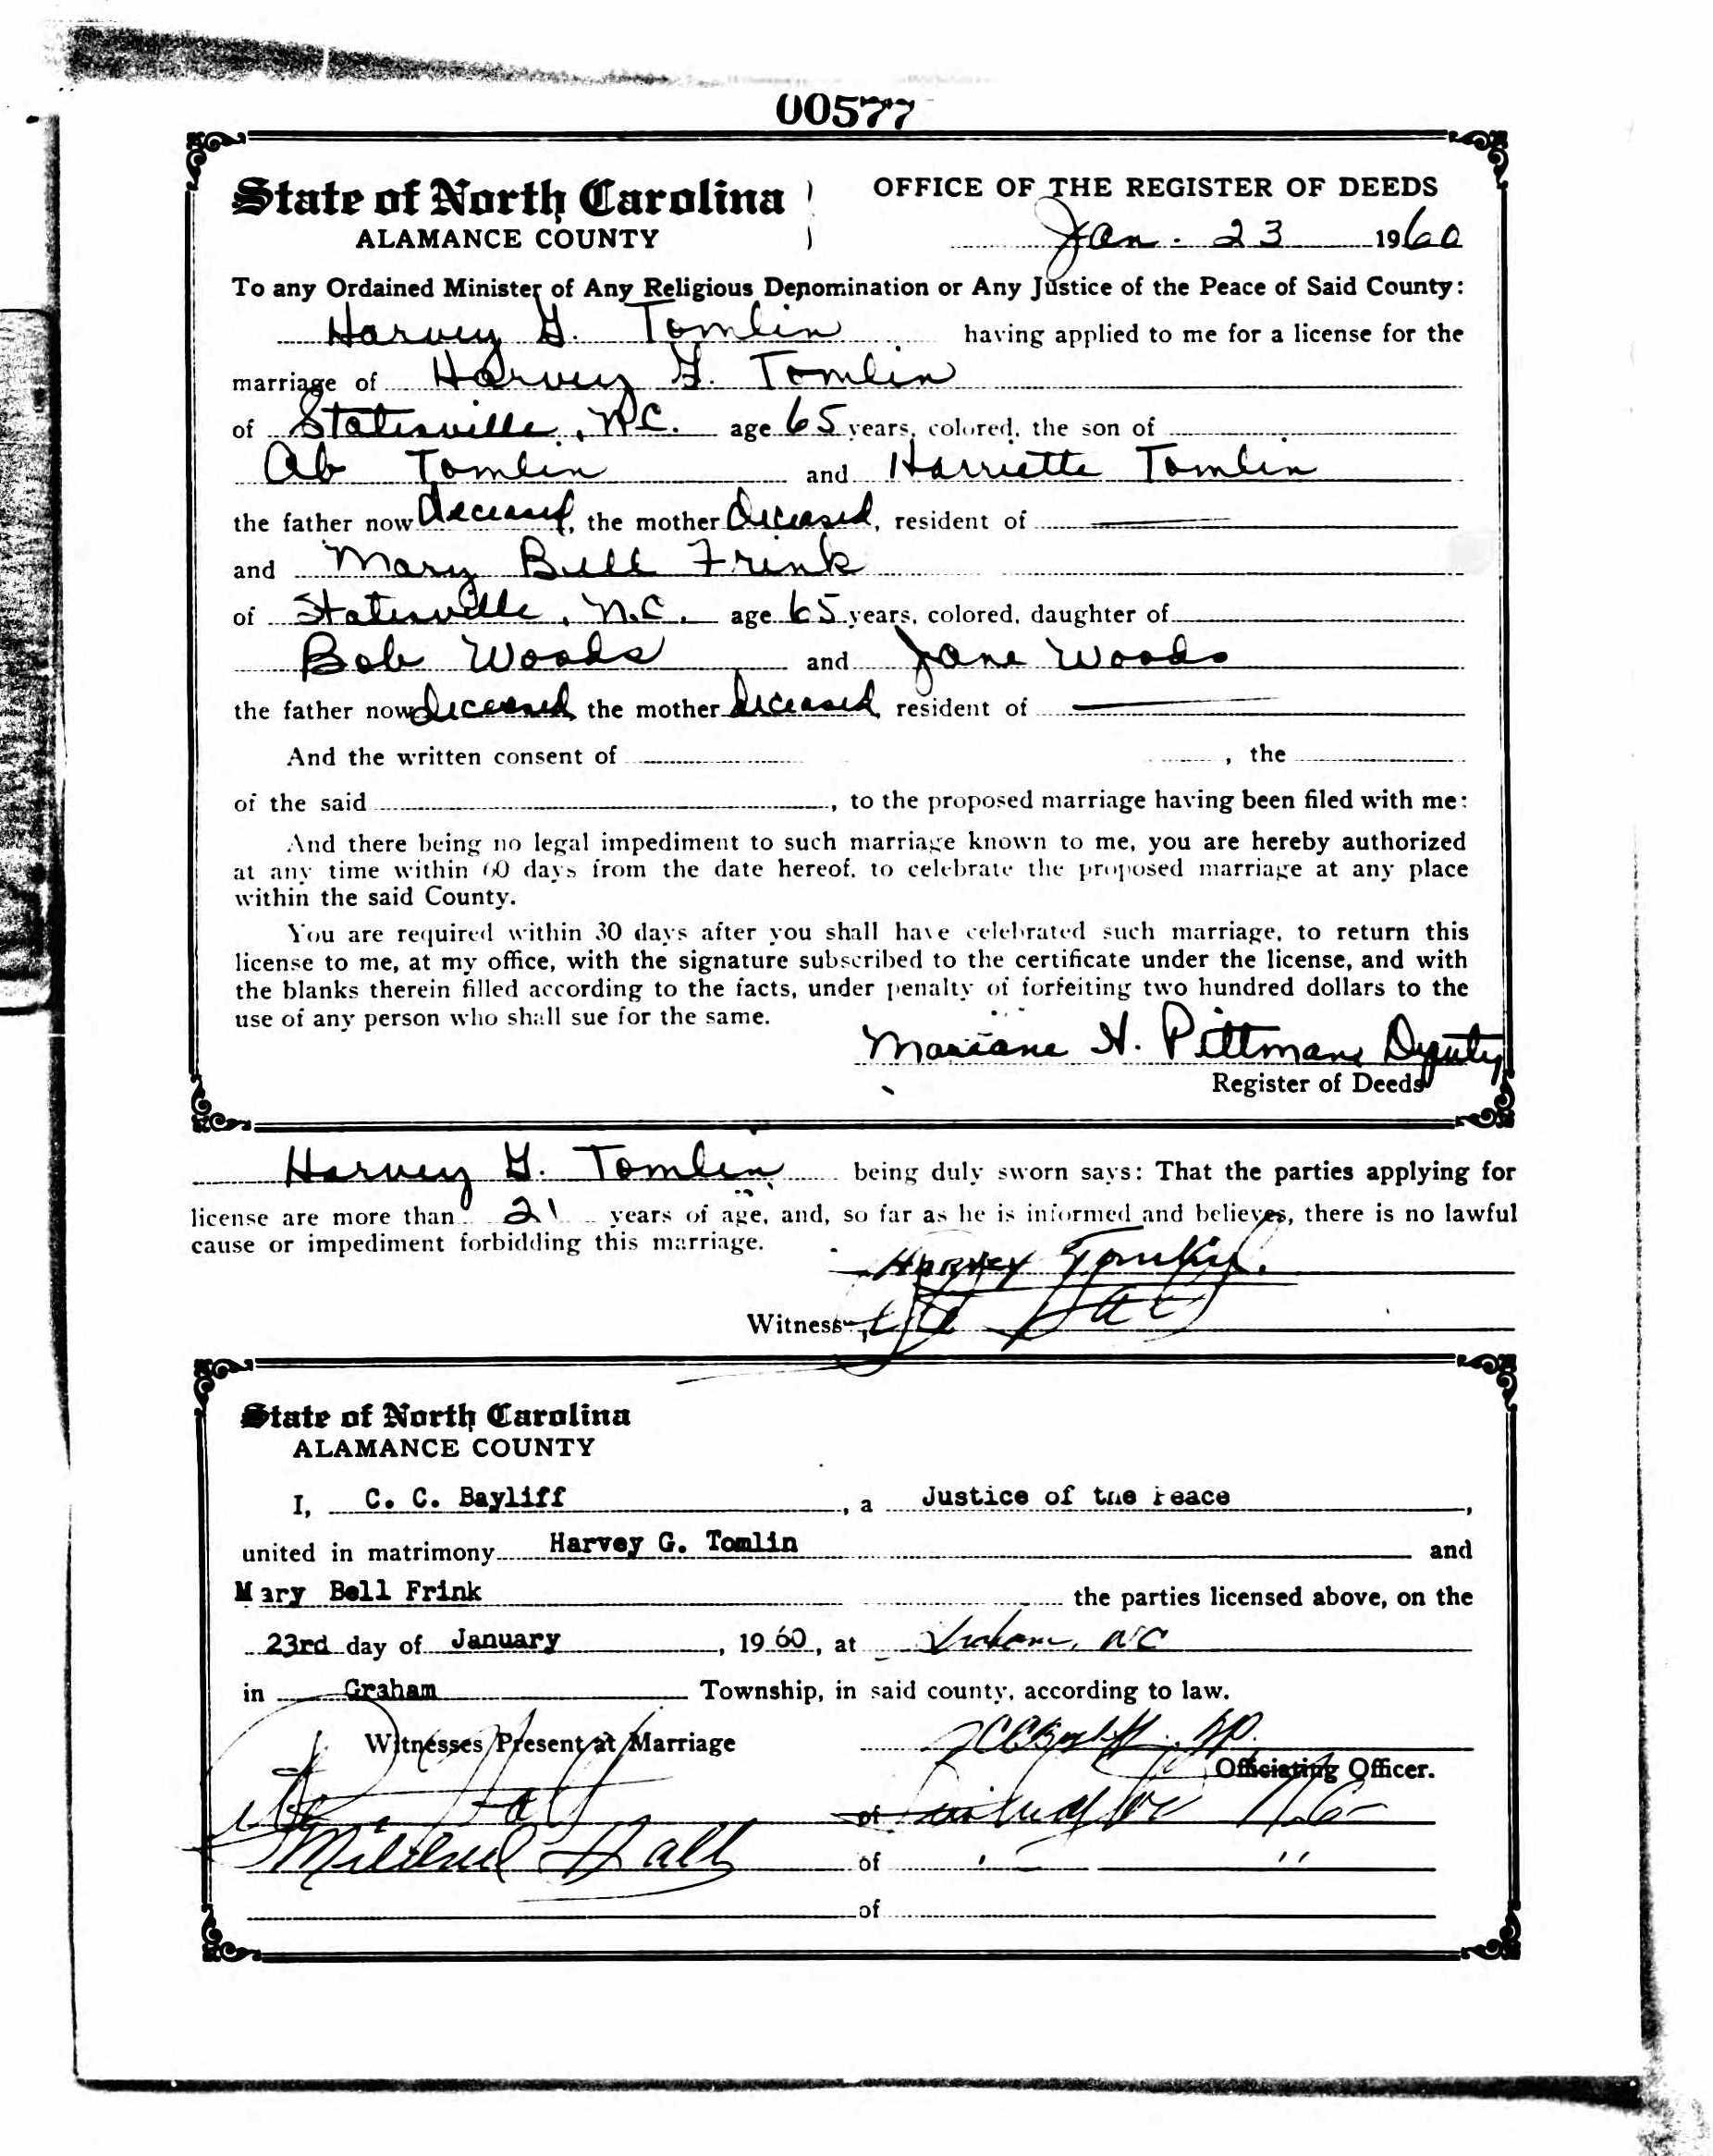 00577
State of North Carolina
ALAMANCE COUNTY
OFFICE OF THE REGISTER OF DEEDS
Jan. 23 1960
To any Ordained Minister of Any Religious Denomination or Any Justice of the Peace of Said County:
Harvey G. Tomlin having applied to me for a license for the
marriage of Harvey G. Tomlin
of Statesville, N.C. age 65 years, colored, the son of
Ab Tomlin and Harriette Tomlin
the father now deceased, the mother deceased, resident of
and Mary Bell Frink
of Statesville, N.C. age 65 years, colored, daughter of
Bob Woods and Jane Woods
the father now deceased the mother deceased, resident of
And the written consent of , the
of the said , to the proposed marriage having been filed with me:
And there being no legal impediment to such marriage known to me, you are hereby authorized
at any time within 60 days from the date hereof, to celebrate the proposed marriage at any place
within the said County.
You are required within 30 days after you shall have celebrated such marriage, to return this
license to me, at my office, with the signature subscribed to the certificate under the license, and with
the blanks therein filled according to the facts, under penalty of forfeiting two hundred dollars to the
use of any person who shall sue for the same.
Mariane H. Pittman, Deputy
Register of Deeds
Harvey G. Tomlin being duly sworn says: That the parties applying for
license are more than 21 years of age, and, so far as he is informed and believes, there is no lawful
cause or impediment forbidding this marriage.
Harvey Tomlin
Witness
State of North Carolina
ALAMANCE COUNTY
I, C. C. Bayliff, a Justice of the Peace,
united in matrimony Harvey G. Tomlin and
Mary Bell Frink the parties licensed above, on the
23rd day of January, 1960, at Graham, NC
in Graham Township, in said county, according to law.
Witnesses Present at Marriage
C C Bayliff, J.P.
Officiating Officer.
of N.C.
Mildred Hall of " "
of